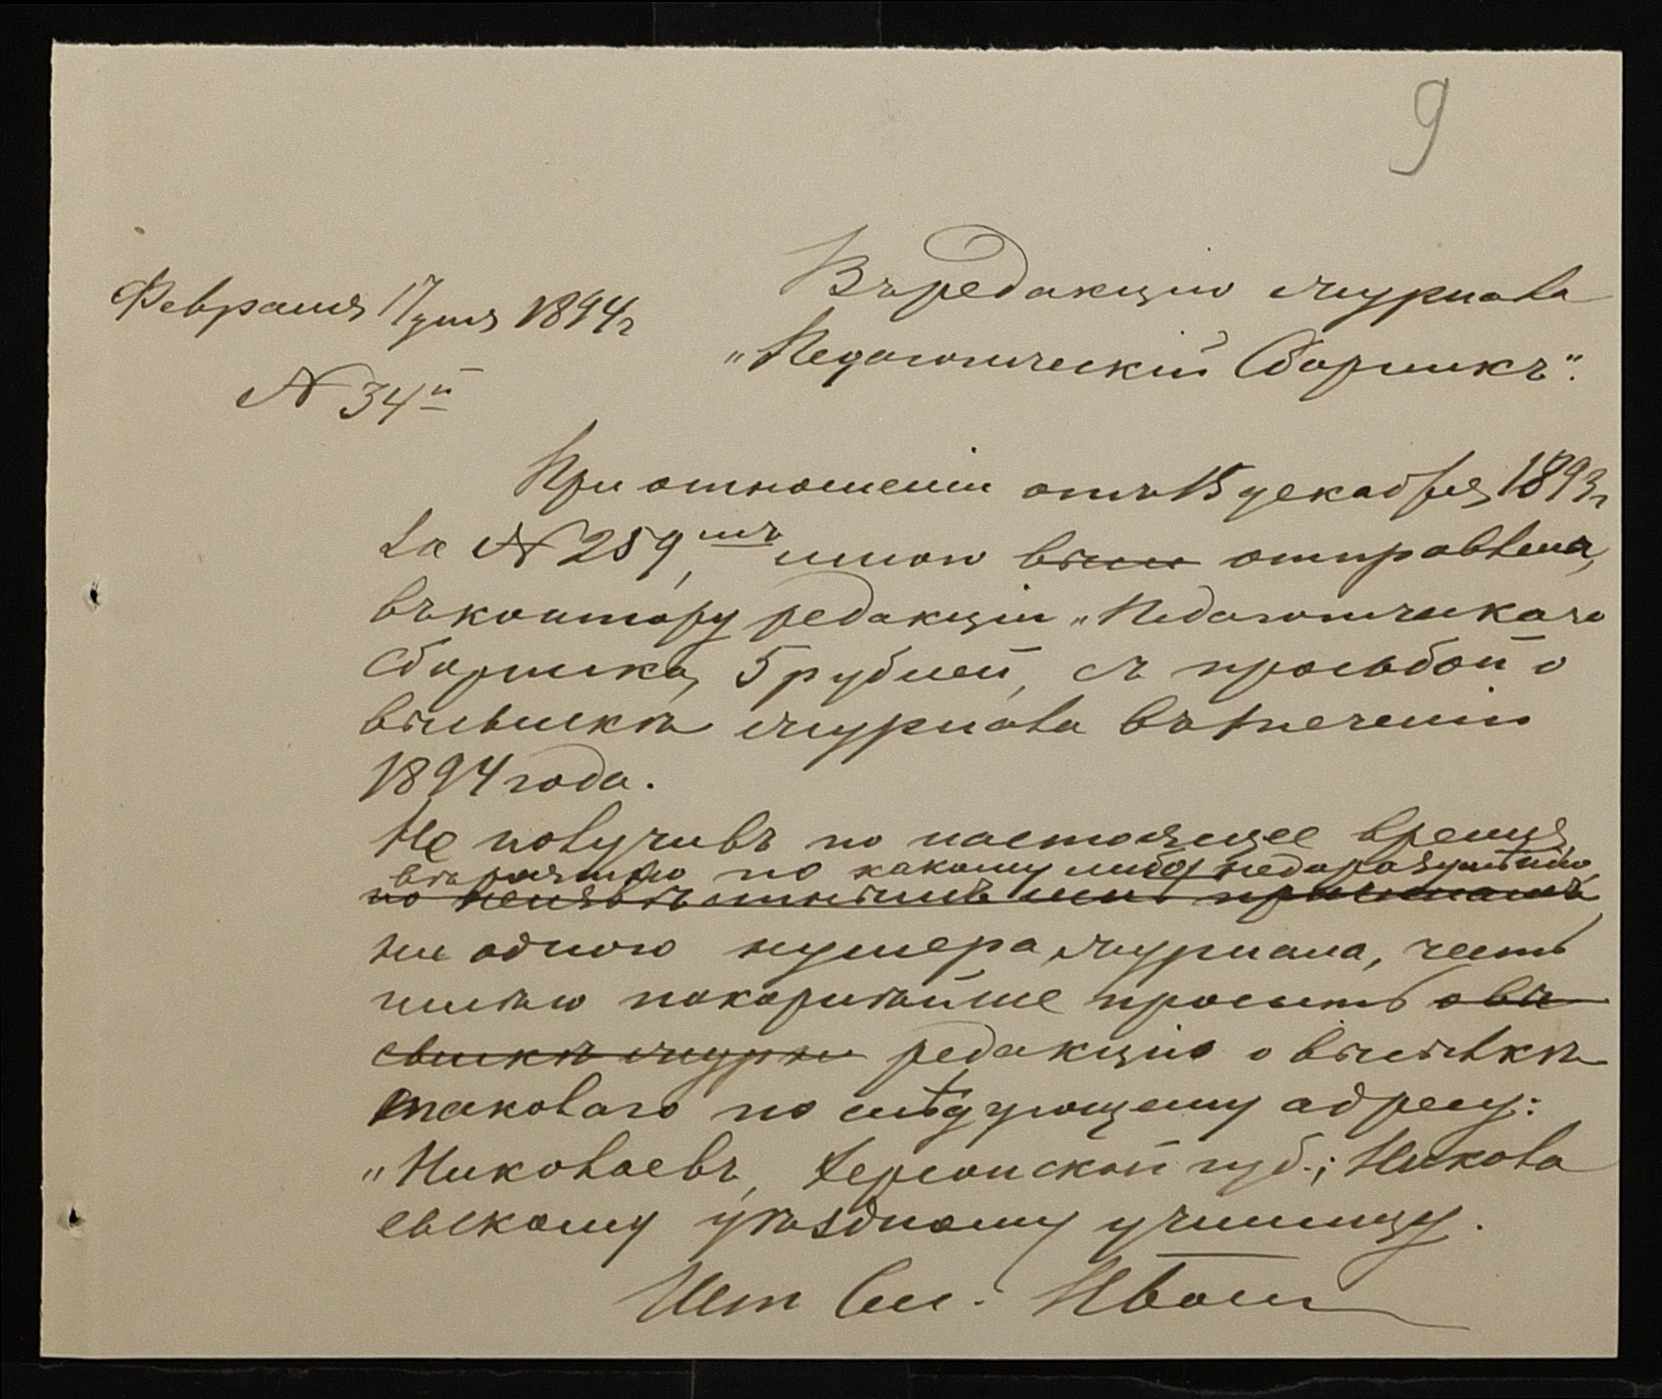 9
Въ редакцію журнала
Февраля 17 дня 1894 г
„Педагогическій Сборникъ".
№ 34й
При отношеніи отъ 15 декабря 1893 г
за № 259, мною были отправлены,
въ контору редакціи „Педагогическаго
Сборника, 5 рублей, съ просьбой о
высылкѣ журнала въ теченіи
1894 года.
Не получивъ по настоящее время
вѣроятно по какому либо недоразумѣнію
по неизвѣстнымъ мнѣ причинамъ
ни одного нумера журнала, честь
имѣю покорнѣйше просить о вы
сылкѣ журна редакцію о высылкѣ
таковаго по слѣдующему адресу:
„Николаевъ, Херсонской губ.; Никола
евскому уѣздному училищу.